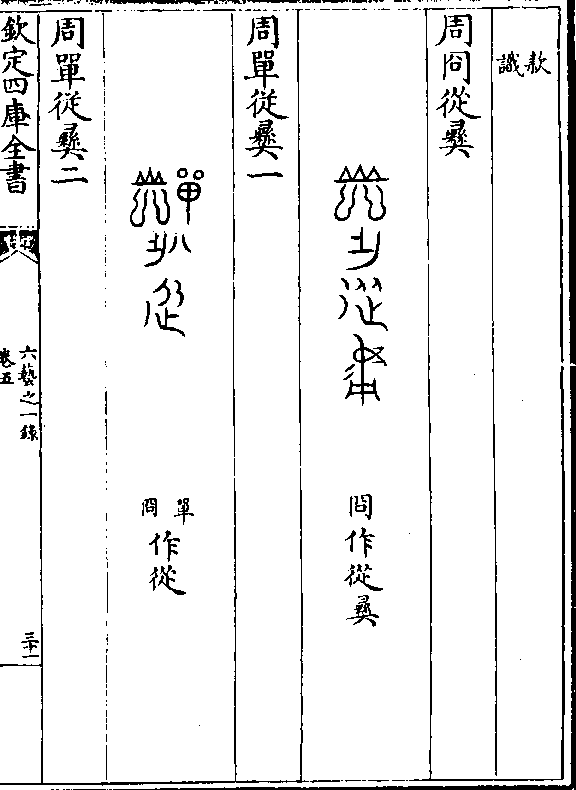 款識
周冏從彝
冏作從彝
周單從彝一
單冏作從
周單從彝二
欽定四庫全書
六藝之一錄
卷五
三十一